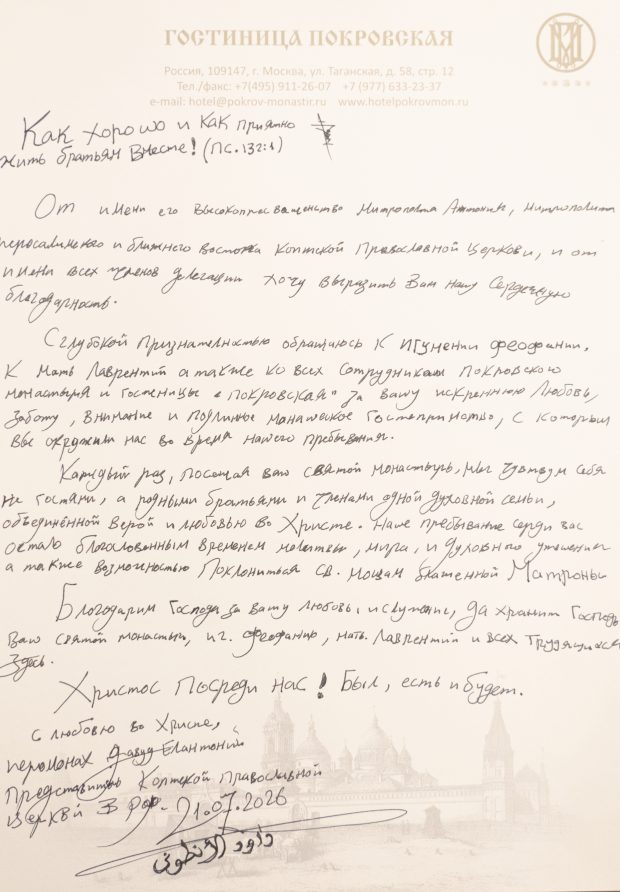 ГОСТИНИЦА ПОКРОВСКАЯ
Россия, 109147, г. Москва, ул. Таганская, д. 58, стр. 12
Тел./факс: +7(495) 911-26-07 +7 (977) 633-23-37
e-mail: hotel@pokrov-monastir.ru www.hotelpokrovmon.ru
Как хорошо и как приятно
жить братьям вместе! (Пс. 132:1)
От имени его высокопреосвященство митрополита Антония, митрополита
иеросалимского и ближнего востока Коптской Православной Церкви, и от
имени всех членов делегации хочу выразить Вам нашу сердечную
благодарность.
С глубокой признательностью обращаюсь к игумении Феофании,
к мать Лаврентий а также ко всех сотрудникам Покровского
монастыря и гостеницы «Покровская" за вашу искреннюю любовь,
заботу, внимание и подлинное монашеское гостеприимство, с которым
вы окружили нас во время нашего пребывания.
Каждый раз, посещая ваш святой монастырь, мы чувствуем себя
не гостями, а родными братьями и членами одной духовной семьи,
объединённой верой и любовью во Христе. Наше пребывание среди вас
остало благословенным временем молитвы, мира, и духовного утешения
а также возможностью поклониться св. мощам блаженной Матроны
Благодарим Господа за вашу любовь и служение, да хранит Господь
ваш святой монастырь, иг. Феофанию, мать Лаврентий и всех трудящихся
здесь.
Христос посреди нас! Был, есть и будет.
С любовью во Христе,
иеромонах Давуд Елантоний
Представитель Коптской православной
церкви в РФ.
21.07.2026
داود الأنطوني